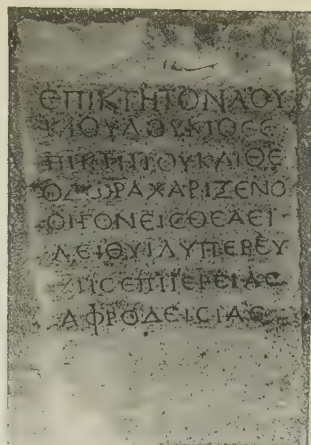 ΕΠΙΚΤΗΤΟΝΛΟΥ
ΚΙΟΥΛΟΥΚΙΟϹΕ
ΠΙΚΤΗΤΟΥΚΑΙΘΕ
ΟΔΩΡΑΧΑΡΙΞΕΝΟ
ΟΙΓΟΝΕΙϹΘΕΑΕΙ
ΛΕΙΘΥΙΑΥΠΕΡΕΥ
ΧΗϹΕΠΙΙΕΡΕΙΑϹ
ΑΦΡΟΔΕΙϹΙΑϹ